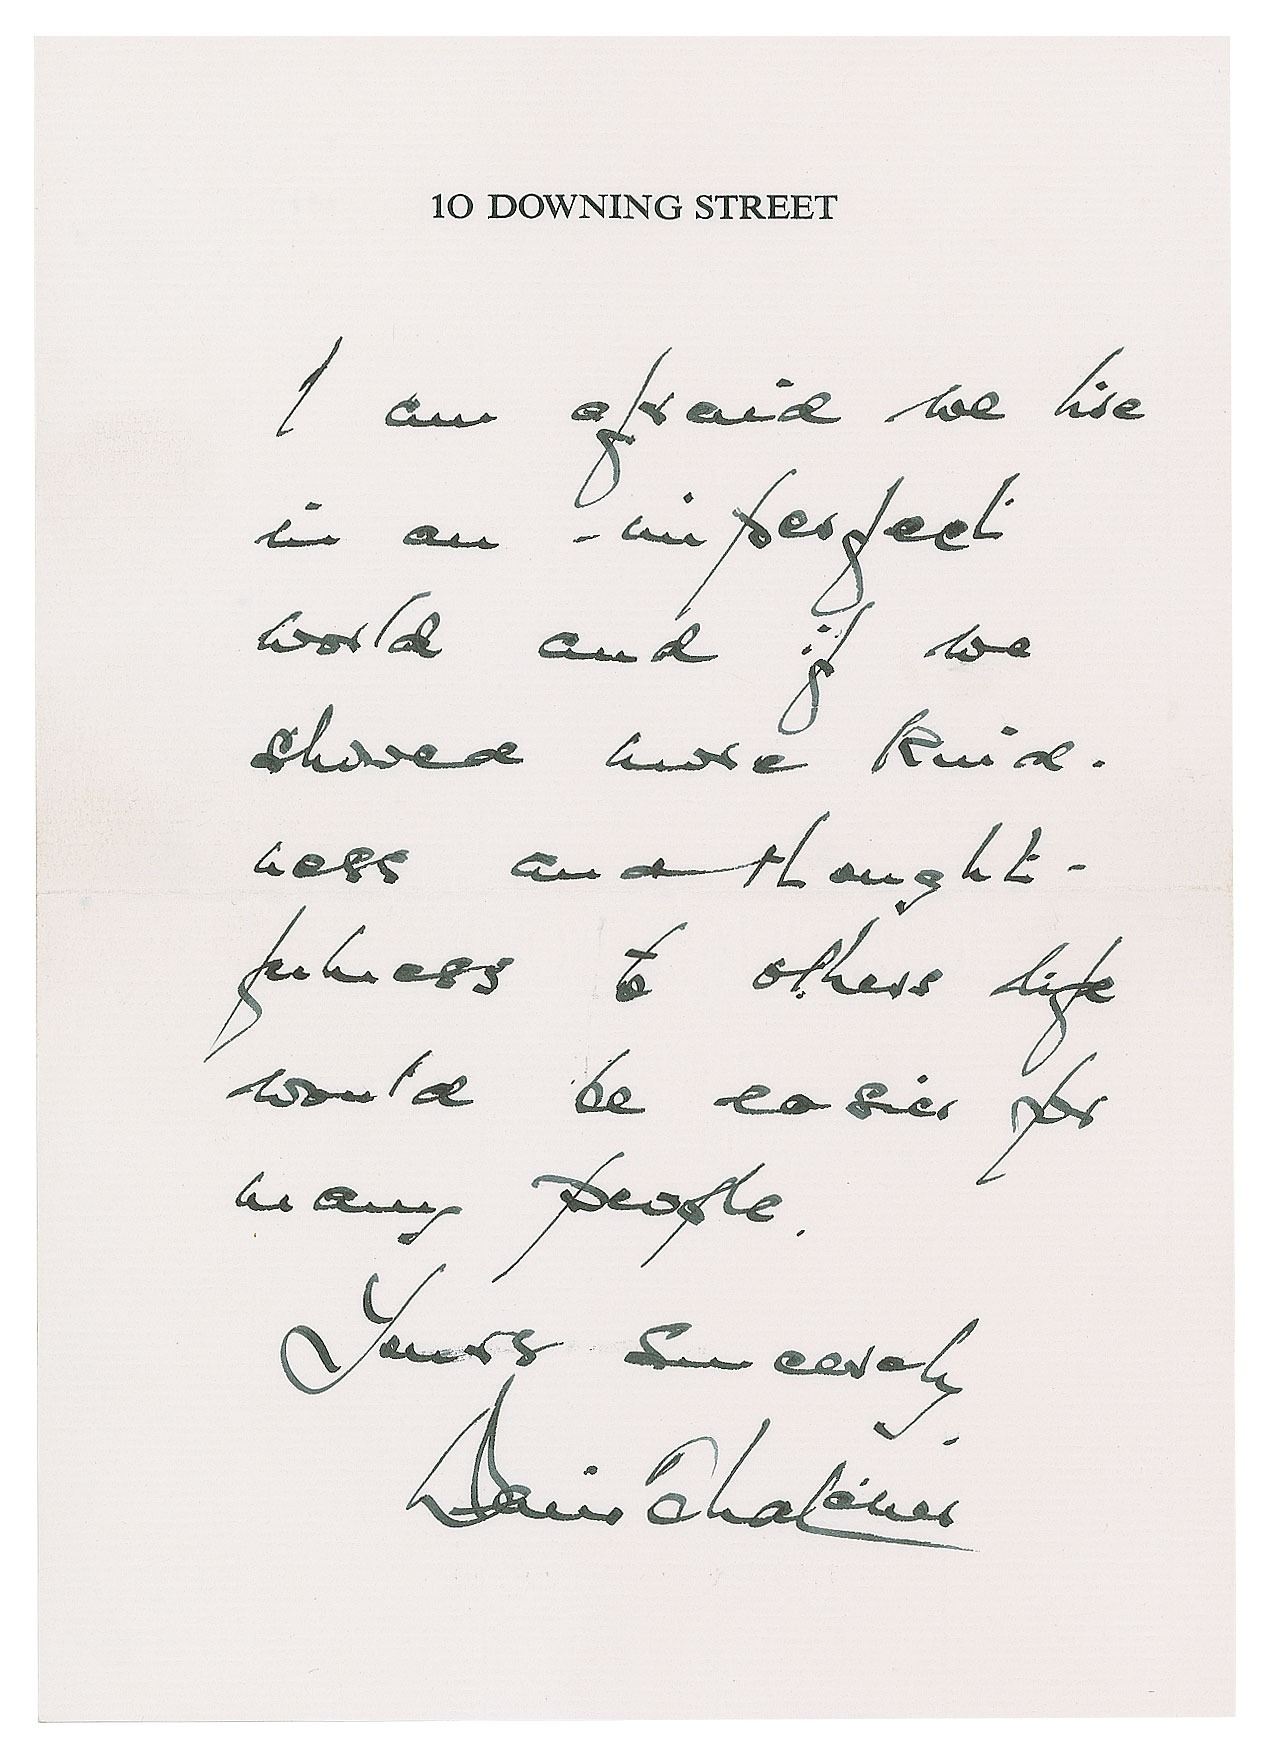 10 DOWNING STREET
I am afraid we live
in an imperfect
world and if we
showed more kind-
ness and thought-
fulness to others life
would be easier for
many people.
Yours sincerely,
Denis Thatcher